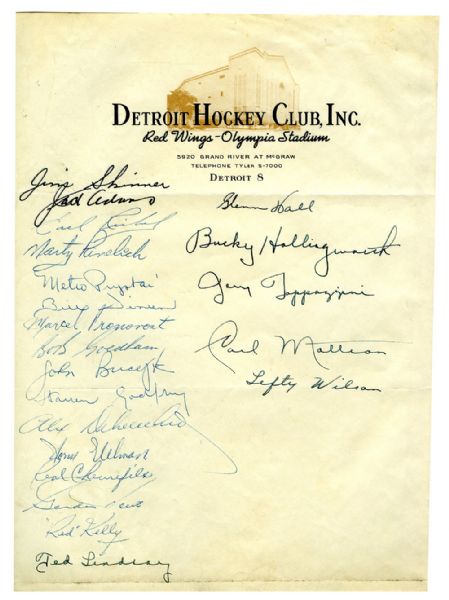 DETROIT HOCKEY CLUB, INC.
Red Wings - Olympia Stadium
5920 GRAND RIVER AT McGRAW
TELEPHONE TYLER 5-7000
DETROIT 8
Jim Skinner
Jack Adams
Earl Reibel
Marty Pavelich
Metro Prystai
Bill Dineen
Marcel Pronovost
Bob Goldham
John Bucyk
Warren Godfrey
Alex Delvecchio
Norm Ullman
Real Chevrefils
Gordon Howe
"Red" Kelly
Ted Lindsay
Glenn Hall
Bucky Hollingworth
Jerry Toppazzini
Carl Mattson
Lefty Wilson